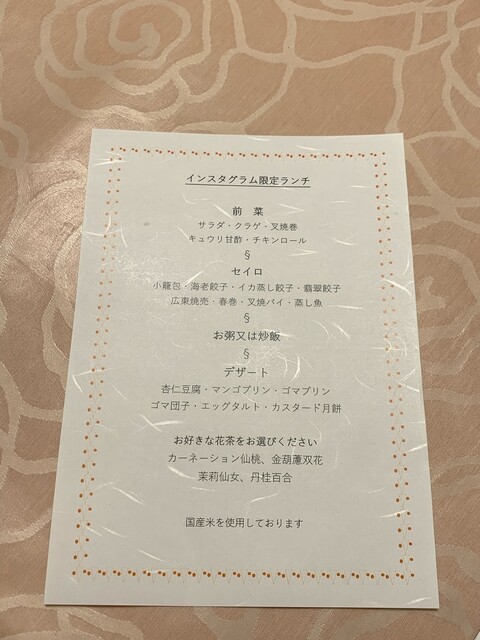 インスタグラム限定ランチ
前 菜
サラダ・クラゲ・叉焼巻
キュウリ甘酢・チキンロール
§
セイロ
小籠包・海老餃子・イカ蒸し餃子・翡翠餃子
広東焼売・春巻・叉焼パイ・蒸し魚
§
お粥又は炒飯
§
デザート
杏仁豆腐・マンゴプリン・ゴマプリン
ゴマ団子・エッグタルト・カスタード月餅
お好きな花茶をお選びください
カーネーション仙桃、金葫蘆双花
茉莉仙女、丹桂百合
国産米を使用しております